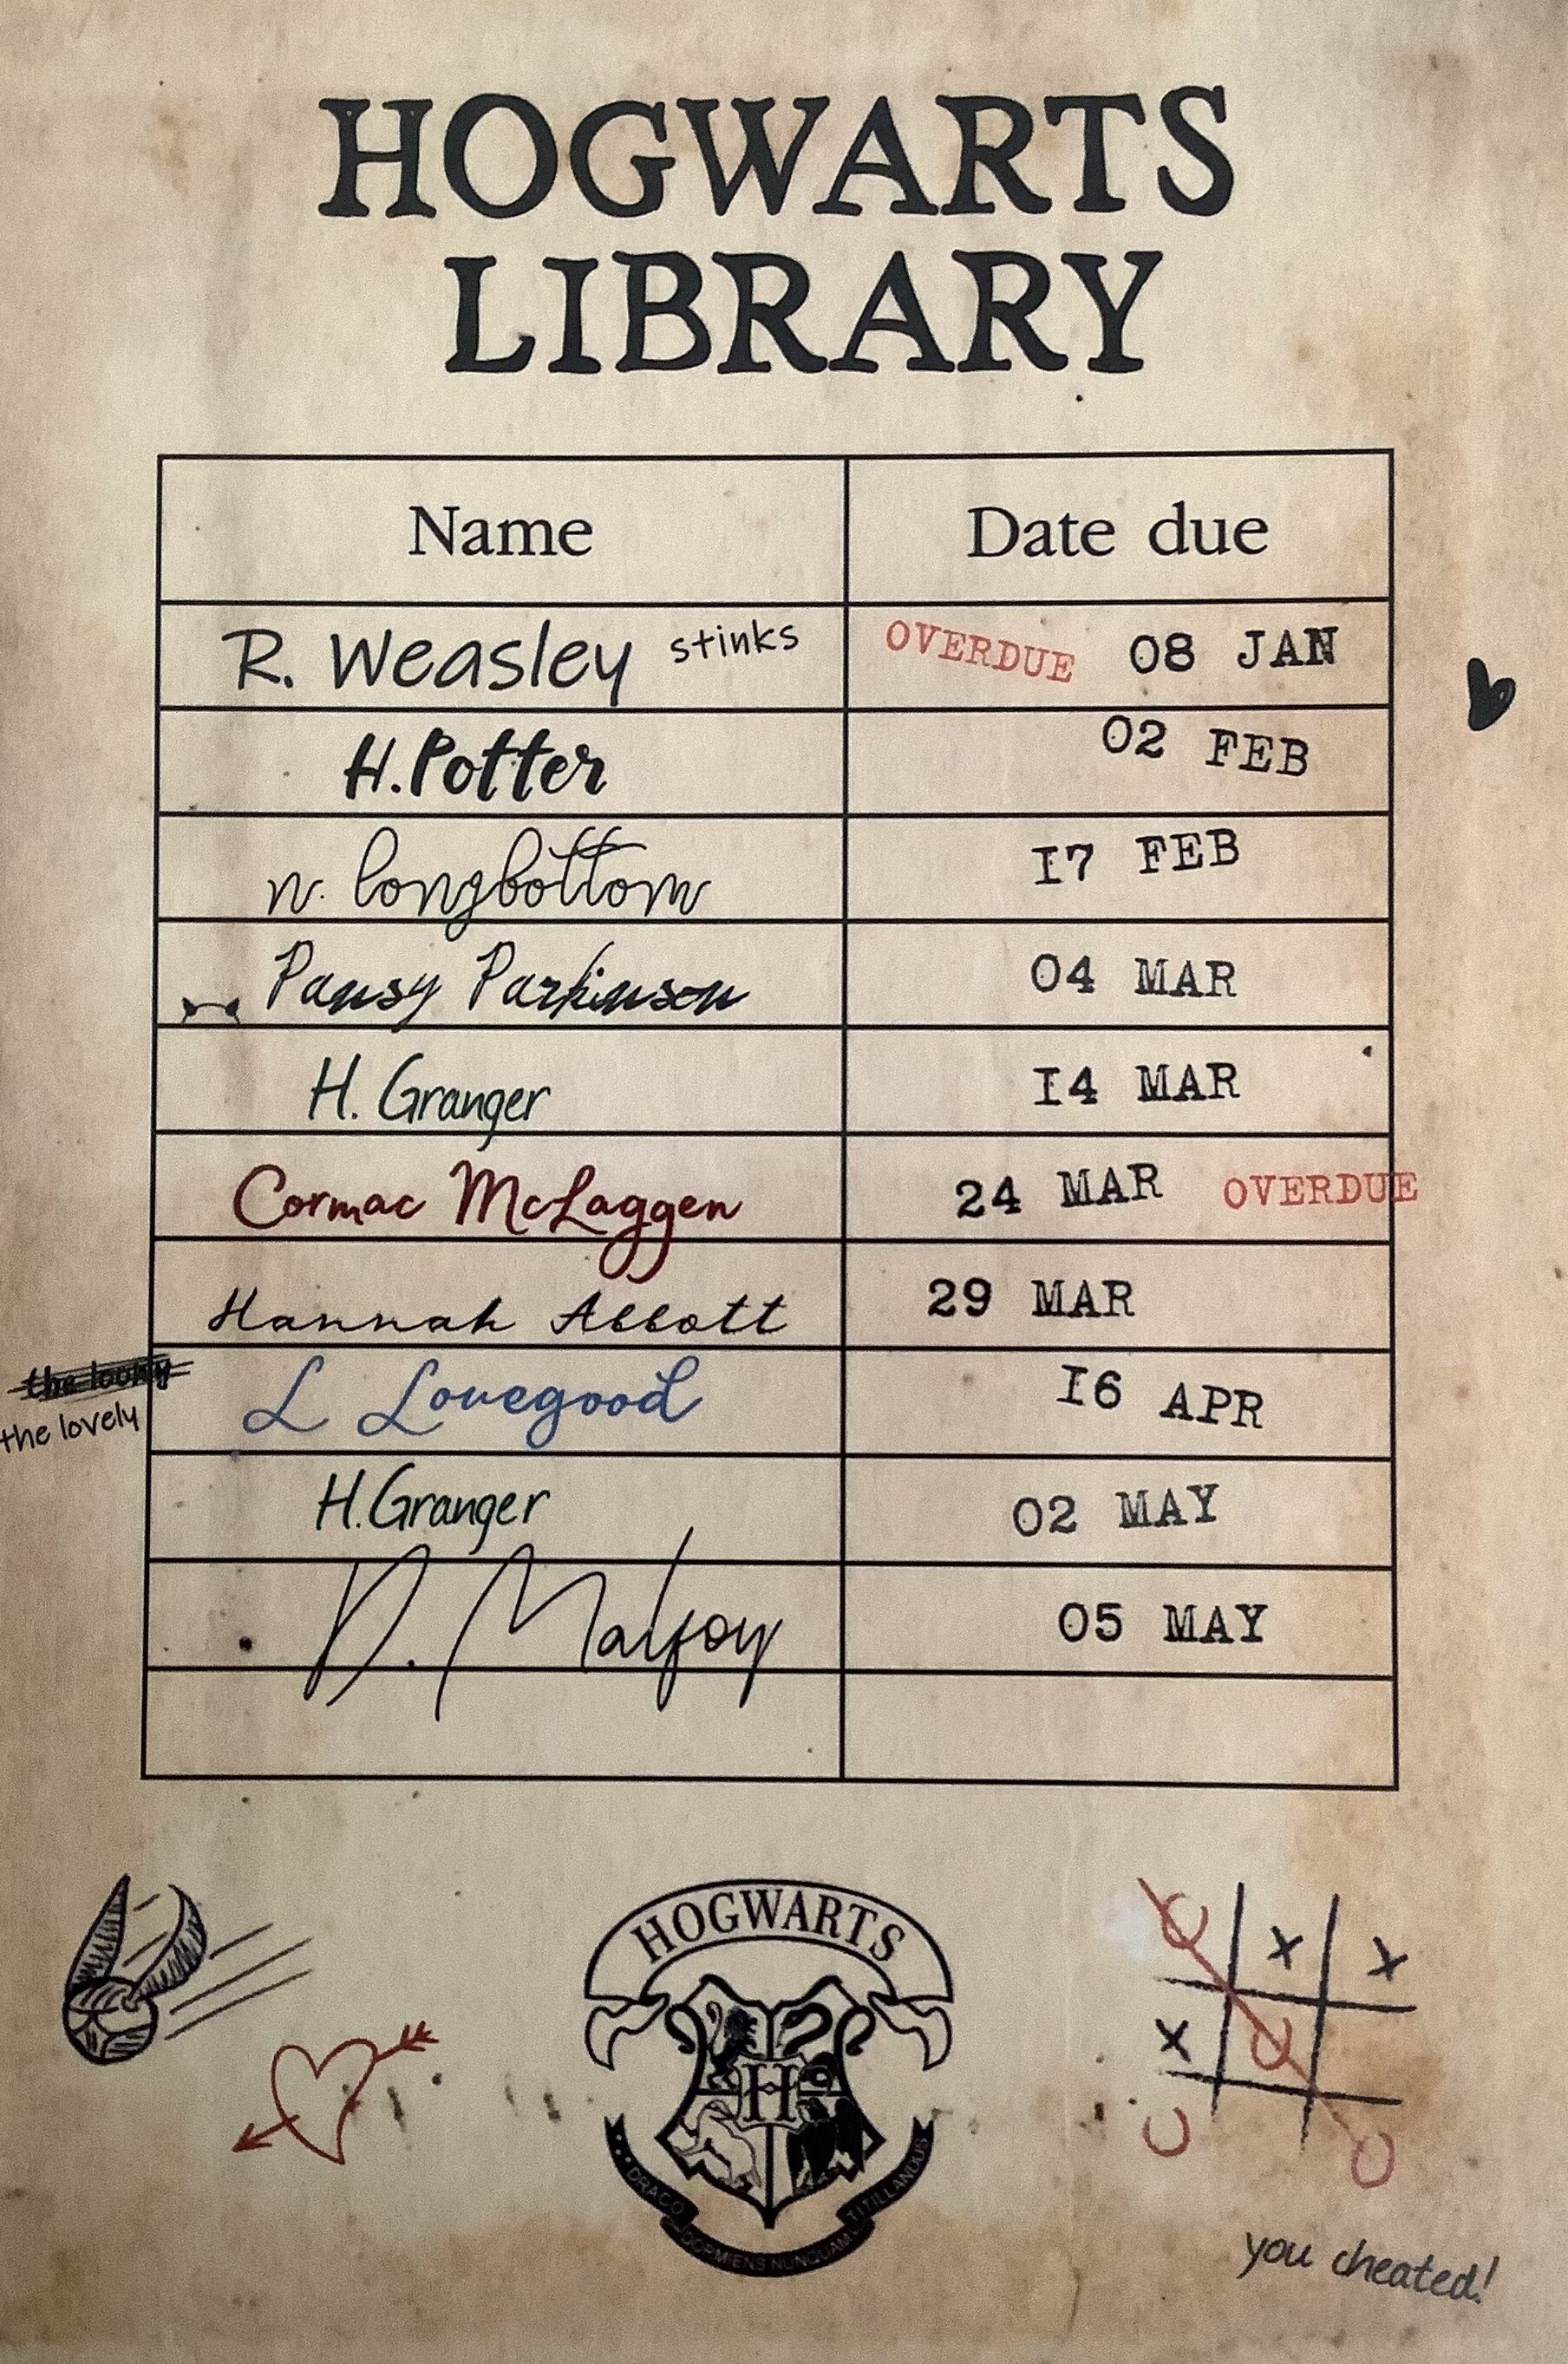 HOGWARTS
LIBRARY
Name Date due
R. Weasley stinks OVERDUE 08 JAN
H.Potter 02 FEB
n. longbottom 17 FEB
Pansy Parkinson 04 MAR
H. Granger 14 MAR
Cormac McLaggen 24 MAR OVERDUE
Hannah Abbott 29 MAR
the loony
the lovely L Lovegood 16 APR
H.Granger 02 MAY
D. Malfoy 05 MAY
HOGWARTS
H
DRACO DORMIENS NUNQUAM TITILLANDUS
O X X
X O
O O
you cheated!